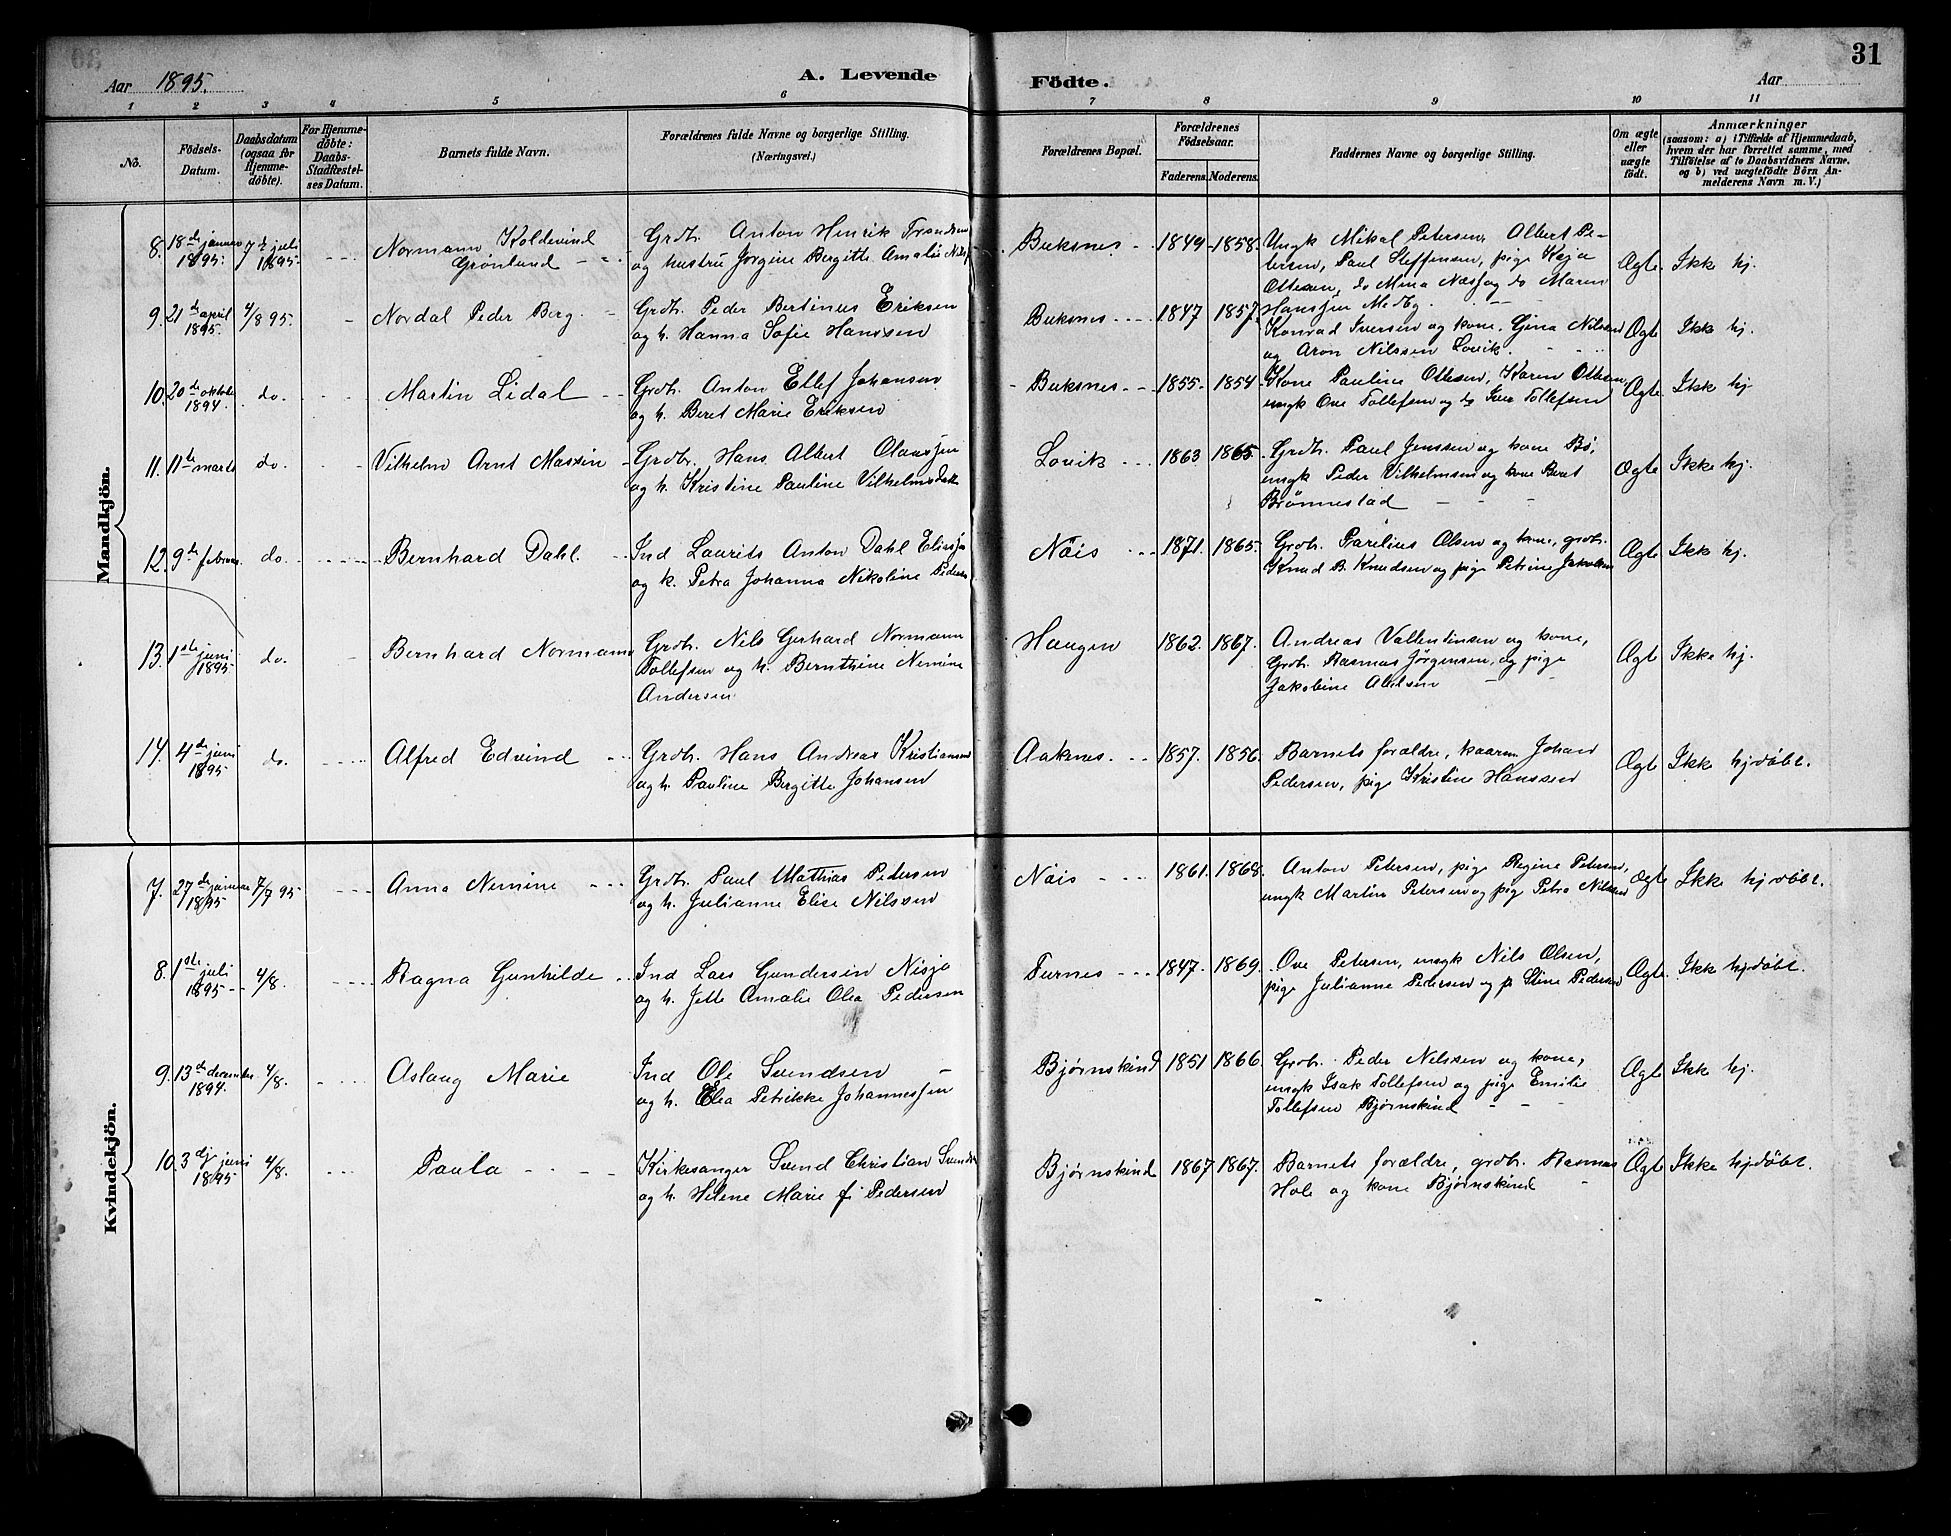 31
Aar 1895. A. Levende Födte. Aar
1 2 3 4 5 6 7 8 9 10 11
No. Födsels-Datum. Daabsdatum (ogsaa for Hjemmedöbte). For Hjemmedöbte: Daabs-Stadfæstelses Datum. Barnets fulde Navn. Forældrenes fulde Navne og borgerlige Stilling. (Næringsvei.) Forældrenes Bopæl. Forældrenes Födselsaar. Faderens. Moderens. Faddernes Navne og borgerlige Stilling. Om ægte eller uægte födt. Anmærkninger (saasom: a) i Tilfælde af Hjemmedaab, hvem der har forrettet samme, med Tilföielse af to Daabsvidners Navne, og b) ved uægtefödte Börn Anmelderens Navn m. V.)
Mandkjön.
8. 18de januar 1895. 7de juli 1895. Normann Koldevind Grönlund Grdb. Anton Henrik
og hustru Jørgine Bergitte Amalie Nilsd
Buksnes 1849 1858. Ungk Mikal Petersen, Albert Pe-
tersen, Paul Steffensen, pige Kaja
Ottesen, do Mina Næss og do Maren
Hanssen Medby.
Ægte. Ikke hj.
9. 21de april 1895. 4/8 95. Nordal Peder Berg. Grdb. Peder Bertinus Eriksen
og h. Hanna Sofie Hanssen
Buksnes 1847 1857. Konrad Iversen og kone, Gjina Nilsen
og Aron Nilssen Lovik.
Ægte Ikke hj.
10. 20de oktober 1894. do. Martin Lidal Grdb. Anton Ellef Johansen
og h. Beret Marie Eriksen
Buksnes 1855. 1854. Kone Pauline Ottesen, Karen Ottesen,
ungk Ove Tollefsen og do Iver Tollefsen
Ægte. Ikke hj.
11. 11te marts do. Vilhelm Arnt Maxsin Grdb. Hans Albert Olaussen
og h. Kristine Pauline Vilhelmsdatt
Lovik 1863 1865. Grdb. Paul Jenssen og kone Bö,
ungk Peder Vilhelmsen og kone Beret
Brønnestad
Ægte Ikke hj.
12. 9de februar do. Bernhard Dahl. Ind Laurits Anton Dahl
og k. Petra Johanna Nikoline Pedersen
Nöis 1871. 1865. Grdb. Parelius Olsen og kone, grdb.
Knud B. Knudsen og pige Petrine Jakobsen
Ægte Ikke hj.
13. 1ste juni 1895. do. Bernhard Normann Grdb. Nils Gerhard Normann
Tollefsen og h. Bernthine Nemine
Andersen.
Haugen 1862. 1867. Andreas Vallentinsen og kone,
Grdb. Rasmus Jørgensen, og pige
Jakobine Abelsen
Ægte Ikke hj.
14. 4de juni 1895 do. Alfred Edvind Grdb. Hans Andreas Kristiansen
og h. Pauline Bergitte Johansen
Aaknes. 1857. 1856. Barnets forældre, kaarm. Johan
Pedersen, pige Kristine Hanssen
Ægte Ikke hjdøbt.
Kvindekjön.
7. 27de januar 1895 7/7 95 Anna Nemine Grdb. Paul Mathias Pedersen
og h. Julianne Elise Nilssen
Nöis 1861. 1868. Anton Petersen, pige Regine Petersen,
ungk Martin Petersen og pige Petra Nilssen
Ægte Ikke hjdøbt.
8. 1ste juli 1895 4/8. Ragna Gunhilde Ind Lars Gundersen Nisja
og h. Jette Amalie Olea Pedersen
Turnes 1847. 1869. Ove Petersen, ungk Nils Olsen,
pige Julianne Pedersen og p Stine Pedersen
Ægte. Ikk hjdøbt.
9. 13de december 1894. 4/8. Aslaug Marie Ind Ole Svendsen
og h. Elea Petrikke Johannessen
Bjørnskind 1851 1866. Grdb. Peder Nilssen og kone,
ungk Isak Tollefsen og pige Emilie
Tollefsen Bjørnskind
Ægte Ikke hj.
10. 3dj juni 1895 4/8. Paula Kirkesanger Svend Christian Svends
og h. Helene Marie f. Pedersen
Bjørnskind 1867 1867. Barnets forældre, grdb. Rasmus
Hole og kone Bjørnskind
Ægte Ikke hjdøbt.